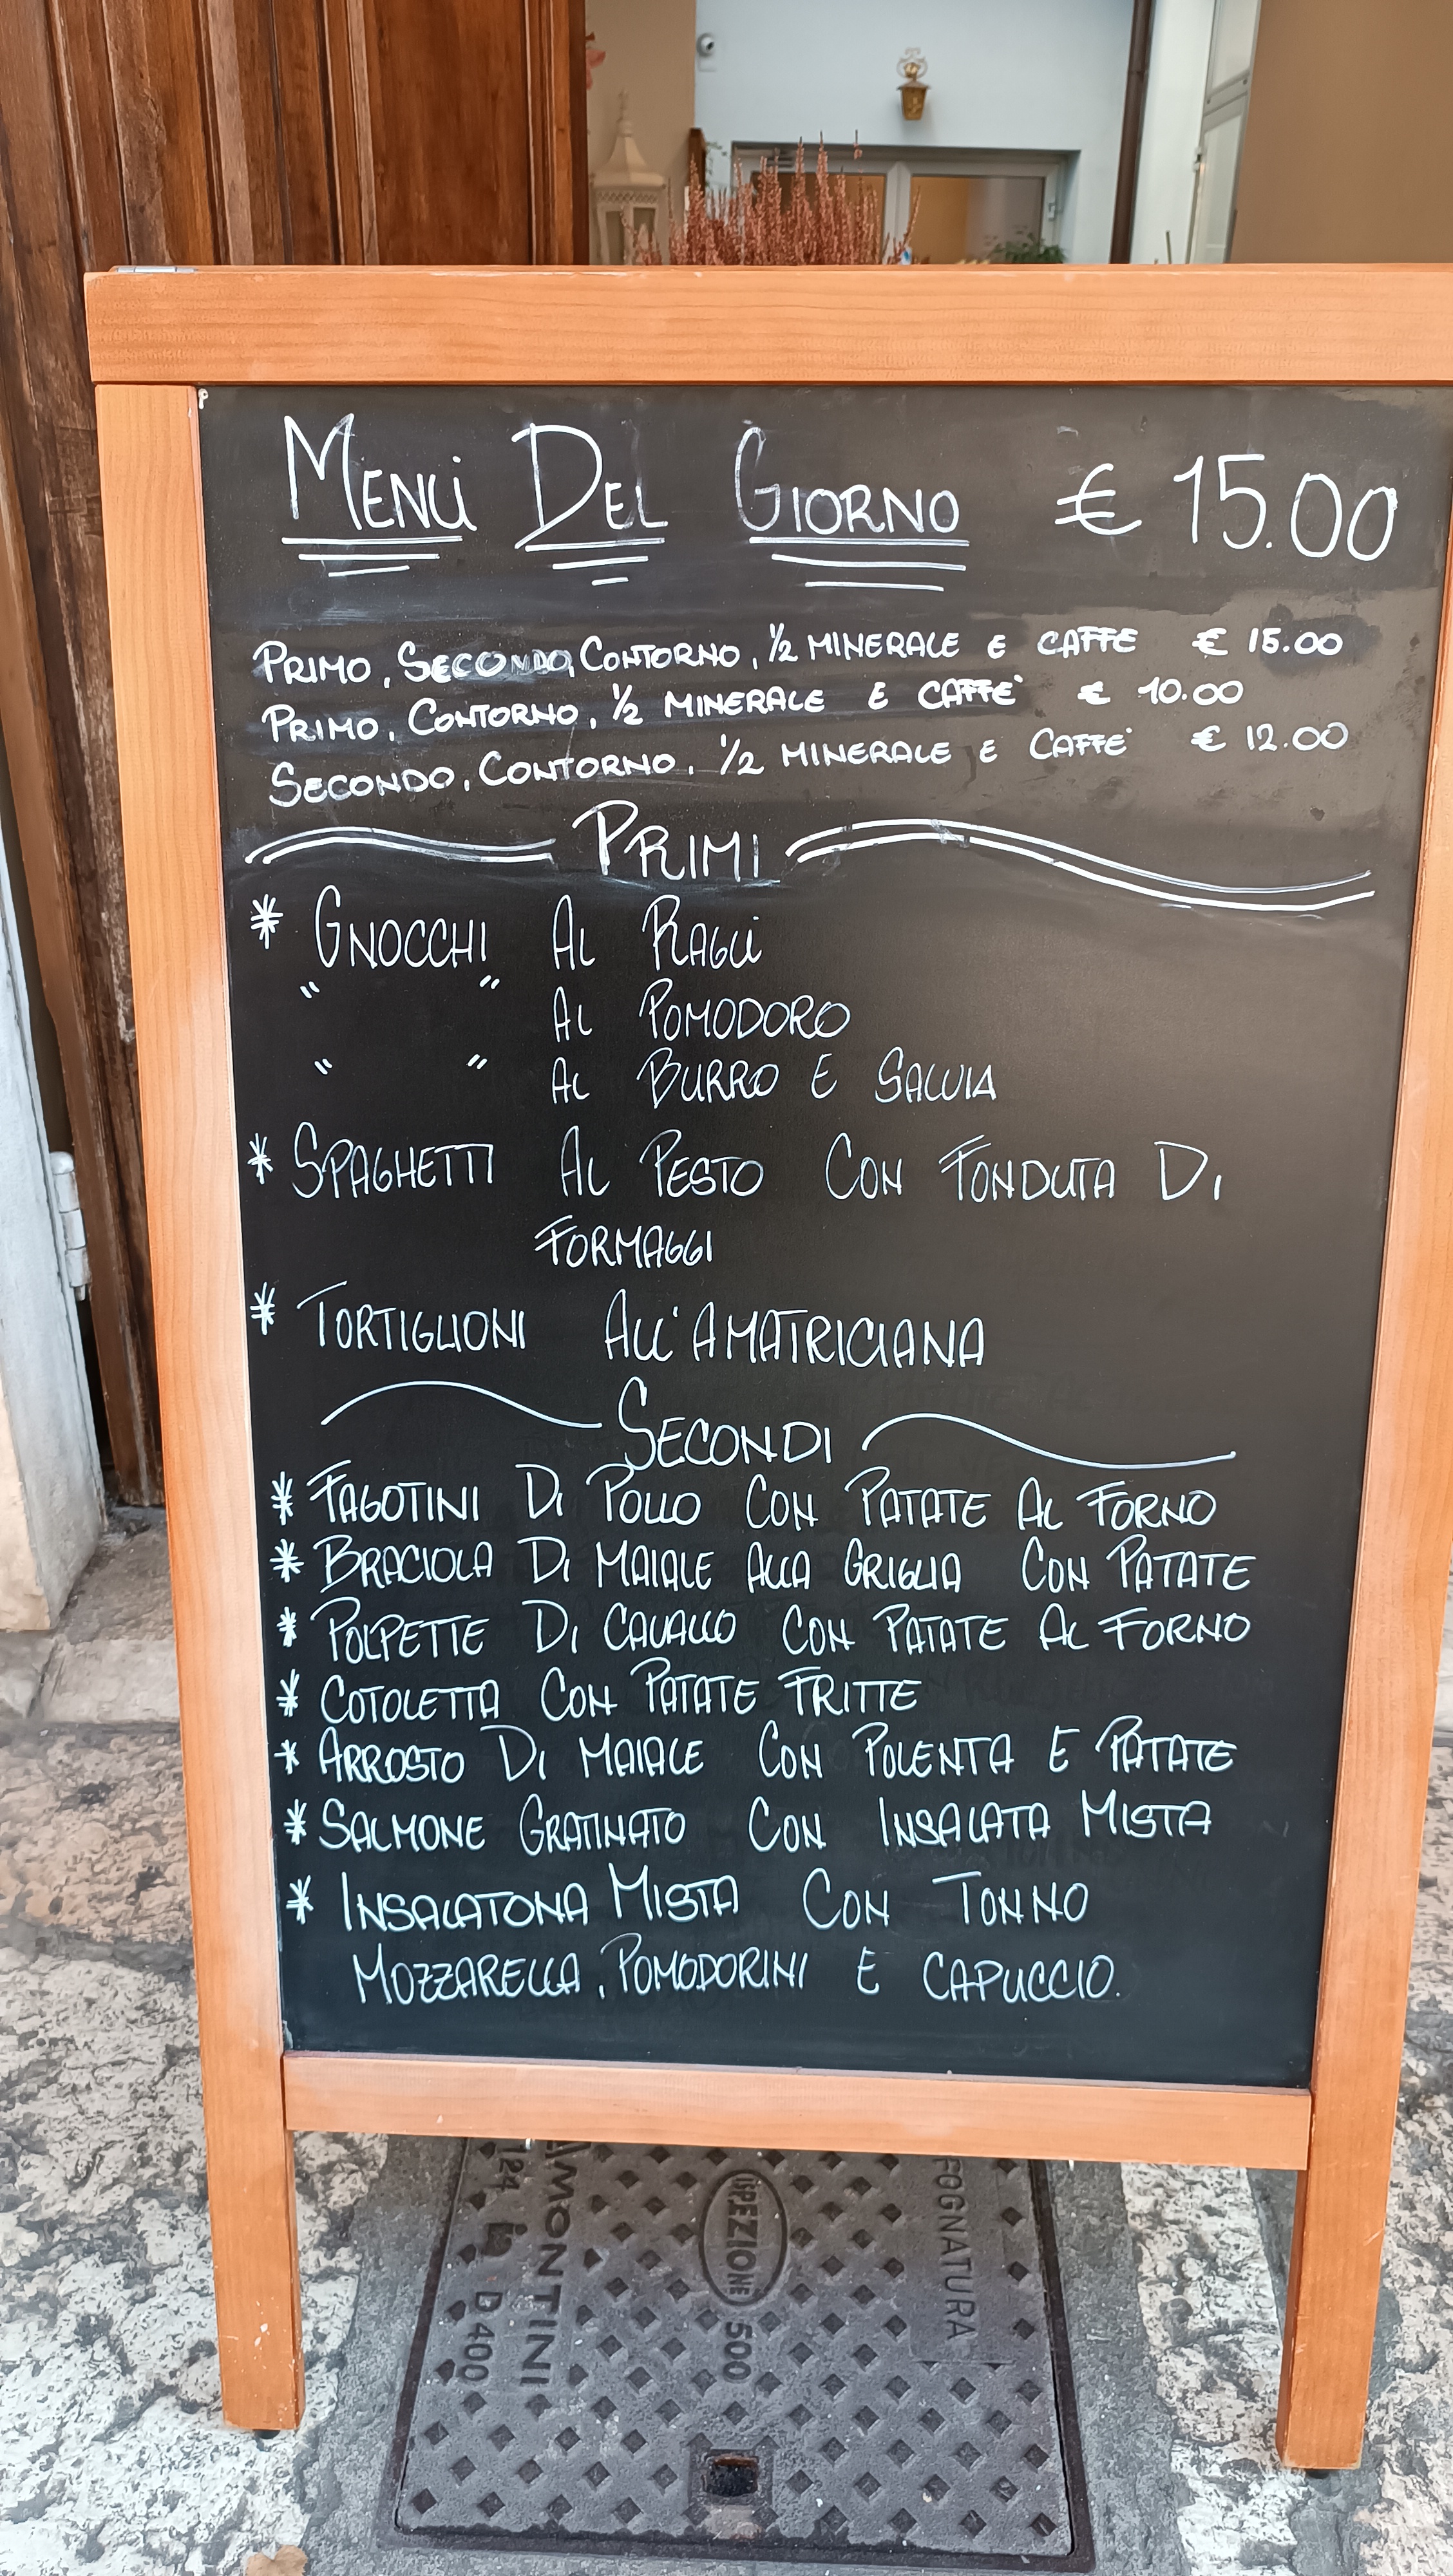 MENÙ DEL GIORNO € 15.00
PRIMO, SECONDO, CONTORNO, 1/2 MINERALE E CAFFE € 15.00
PRIMO, CONTORNO, 1/2 MINERALE E CAFFE' € 10.00
SECONDO, CONTORNO, 1/2 MINERALE E CAFFE' € 12.00
PRIMI
* GNOCCHI AL RAGÙ
" " AL POMODORO
" " AL BURRO E SALVIA
* SPAGHETTI AL PESTO CON FONDUTA DI
FORMAGGI
* TORTIGLIONI ALL'AMATRICIANA
SECONDI
* FAGOTINI DI POLLO CON PATATE AL FORNO
* BRACIOLA DI MAIALE ALLA GRIGLIA CON PATATE
* POLPETTE DI CAVALLO CON PATATE AL FORNO
* COTOLETTA CON PATATE FRITTE
* ARROSTO DI MAIALE CON POLENTA E PATATE
* SALMONE GRATINATO CON INSALATA MISTA
* INSALATONA MISTA CON TONNO
MOZZARELLA, POMODORINI E CAPUCCIO.
FOGNATURA
ISPEZIONE 500
AMONTINI
124 D400